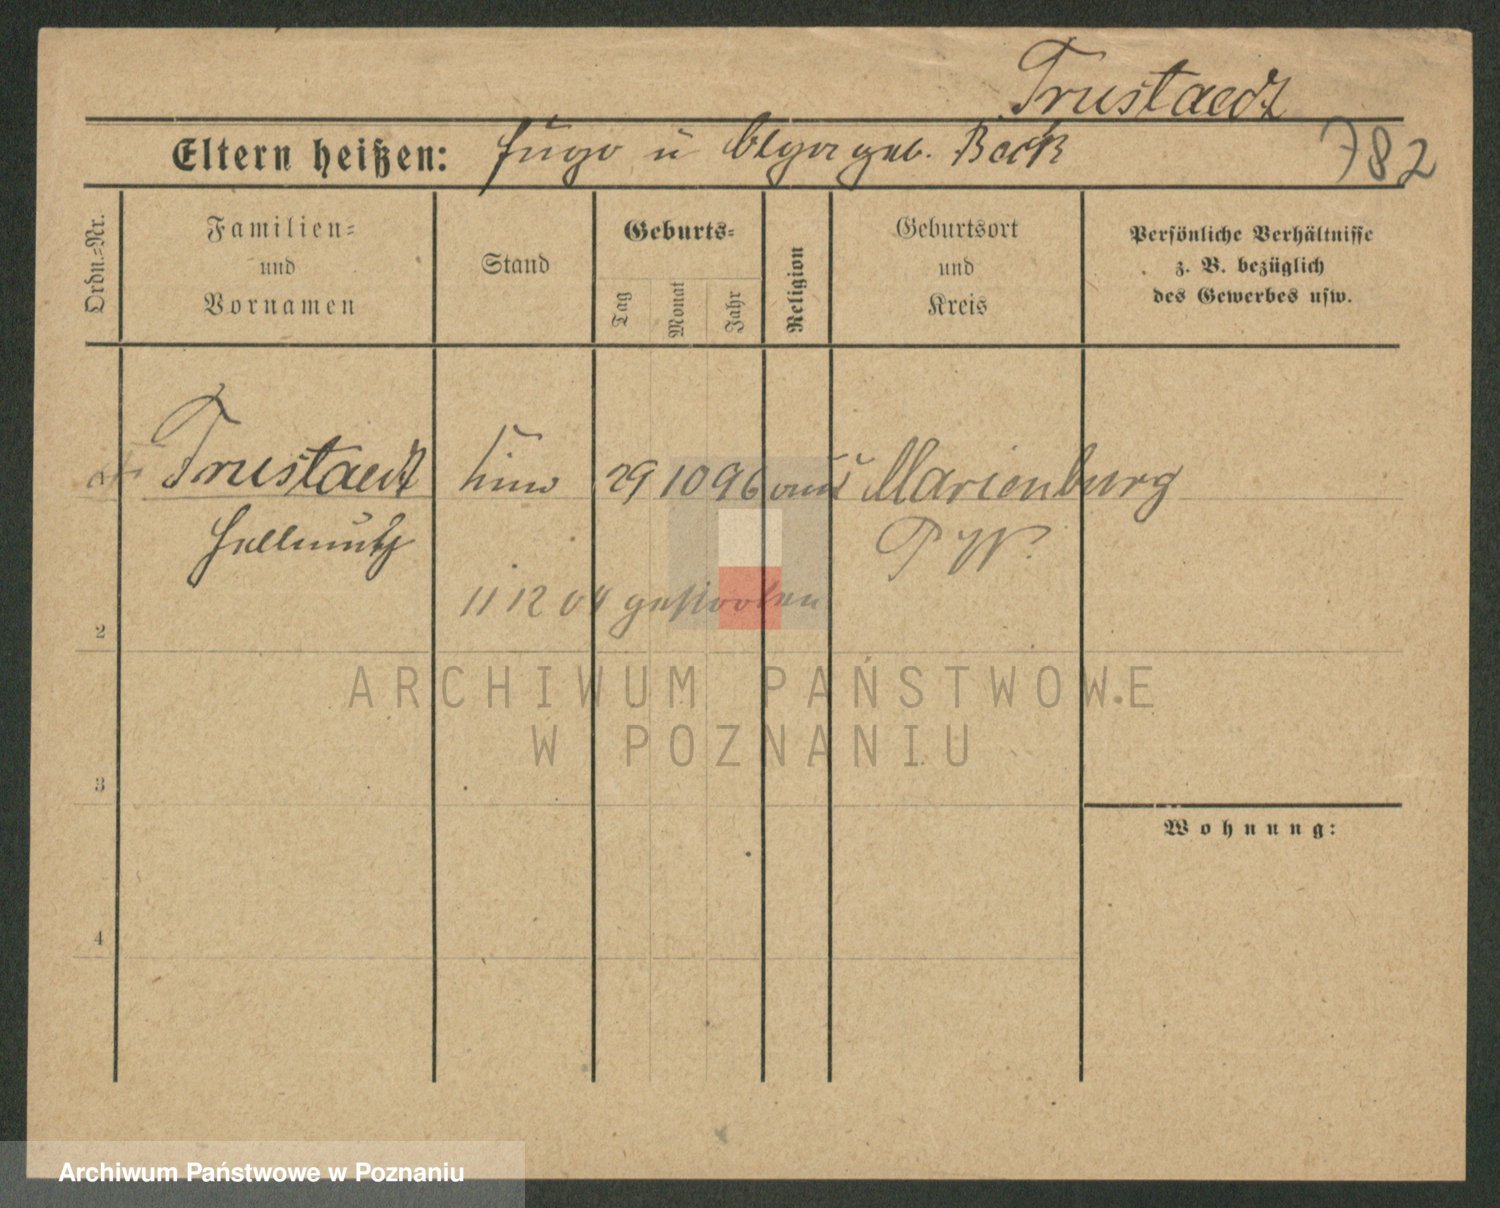 Trustaedt
Eltern heißen: Hugo u Olga geb. Beck
782
Ordn.=Nr.
Familien=
und
Vornamen
Stand
Geburts=
Tag
Monat
Jahr
Religion
Geburtsort
und
Kreis
Persönliche Verhältnisse
z. B. bezüglich
des Gewerbes usw.
Trustaedt 29 10 96 Marienburg
Hellmuth
11 12 04 gestorben
2
3
4
Wohnung:
ARCHIWUM PAŃSTWOWE
W POZNANIU
Archiwum Państwowe w Poznaniu